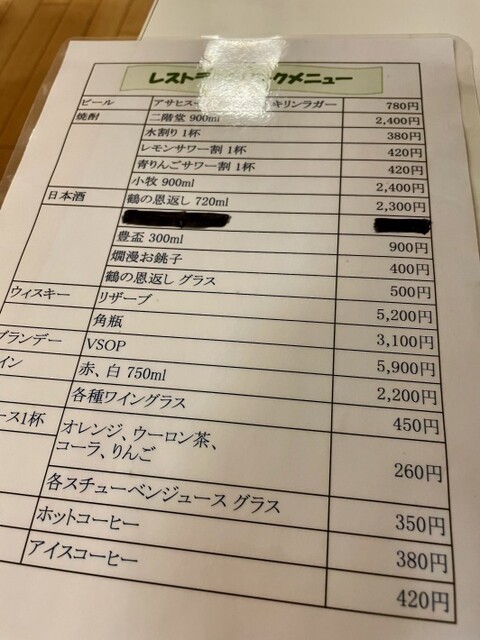 レストラン クメニュー
ビール アサヒス キリンラガー 780円
焼酎 二階堂 900ml 2,400円
水割り 1杯 380円
レモンサワー割 1杯 420円
青りんごサワー割 1杯 420円
小牧 900ml 2,400円
日本酒 鶴の恩返し 720ml 2,300円
豊盃 300ml 900円
爛漫お銚子 400円
鶴の恩返し グラス 500円
ウィスキー リザーブ 5,200円
角瓶 3,100円
ブランデー VSOP 5,900円
イン 赤、白 750ml 2,200円
各種ワイングラス 450円
ース1杯 オレンジ、ウーロン茶、
コーラ、りんご 260円
各スチューベンジュース グラス 350円
ホットコーヒー 380円
アイスコーヒー 420円